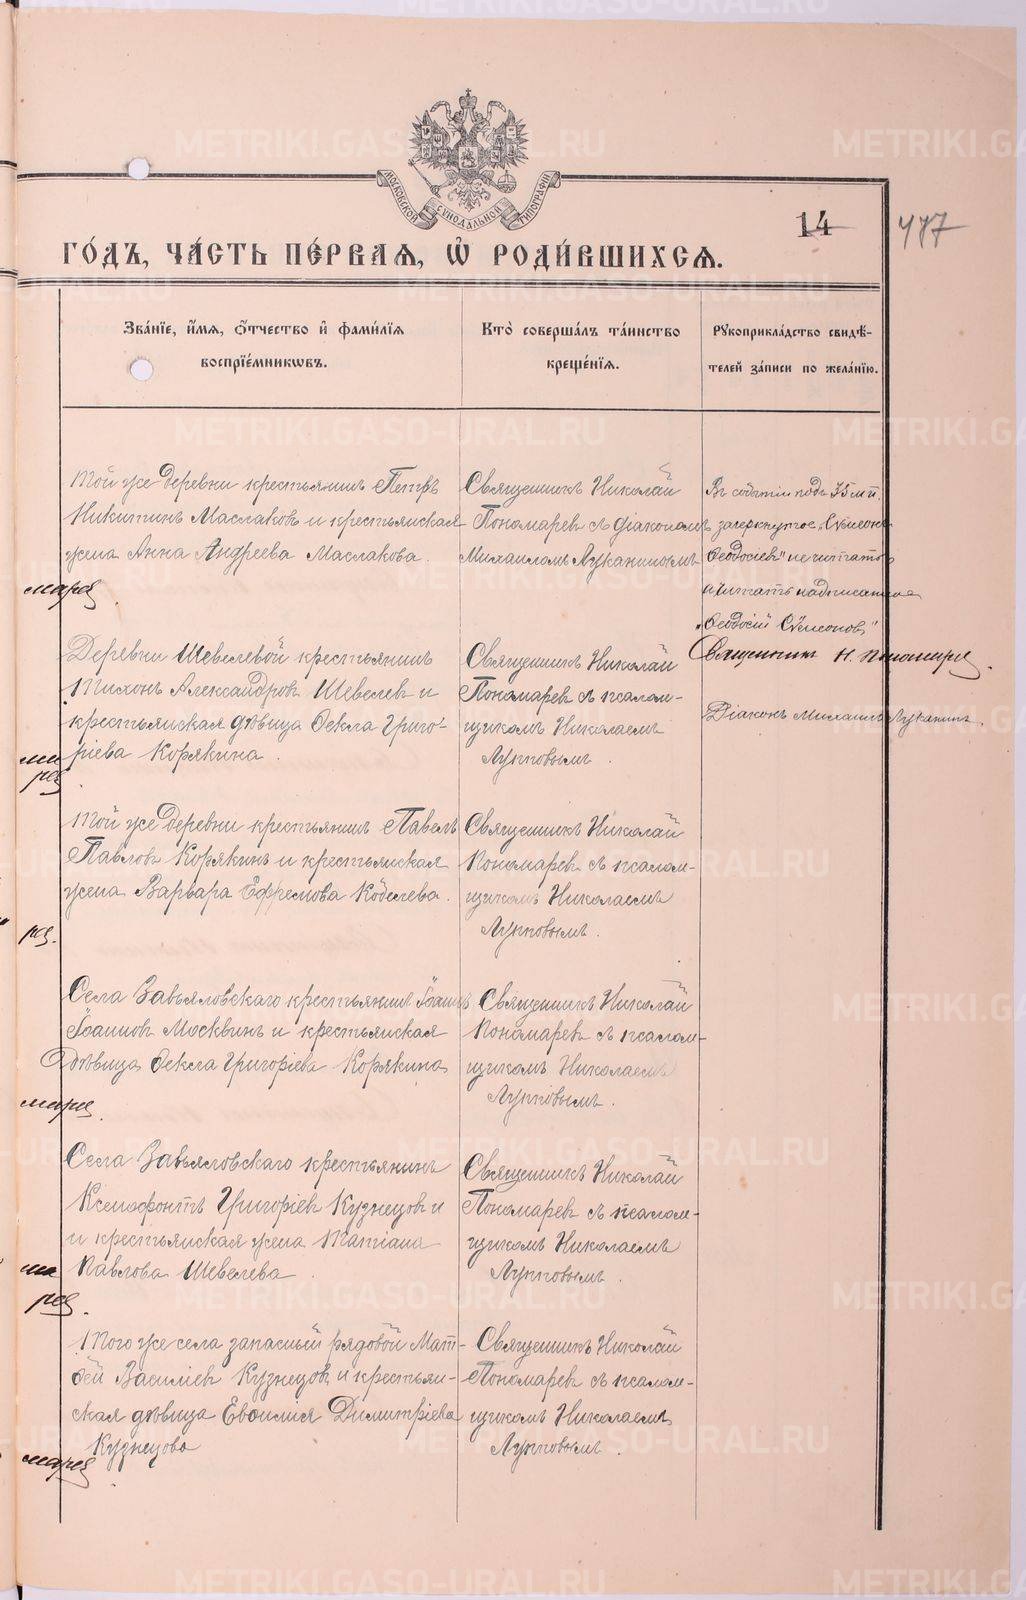 МОСКОВСКОЙ СѴНОДАЛЬНОЙ ТИПОГРАФІИ
14
477
ГО́ДЪ, ЧА́СТЬ ПЕ́РВАѦ, Ѽ РОДИ́ВШИХСѦ.
ЗВА́НІЕ, И҆́МѦ, Ѻ҆́ТЧЕСТВО И҆ ФАМИ́ЛІѦ
ВОСПРІЕ́МНИКѠВЪ.
КТО̀ СОВЕРША́ЛЪ ТА́ИНСТВО
КРЕЩЕ́НІѦ.
РꙊКОПРИКЛА́ДСТВО СВИДѢ́-
ТЕЛЕЙ ЗА́ПИСИ ПО ЖЕЛА́НІЮ.
Той же деревни крестьянинъ Петръ
Никитинъ Маслаковъ и крестьянская
жена Анна Андреева Маслакова.
Священникъ Николай
Пономаревъ съ діакономъ
Михаиломъ Лукинымъ
Въ событіи подъ 75 м.п.
зачеркнутое „Сѵмеонъ
Ѳеодосіевъ" не читать
а читать надписанное
„Ѳеодосій Сѵмеоновъ"
Священникъ Н. Пономаревъ.
Діаконъ Михаилъ Луканинъ.
Деревни Шевелевой крестьянинъ
Тихонъ Александровъ Шевелевъ и
крестьянская дѣвица Ѳекла Григо-
ріева Корякина.
Священникъ Николай
Пономаревъ съ псалом-
щикомъ Николаемъ
Лупповымъ.
Той же деревни крестьянинъ Павелъ
Павловъ Корякинъ и крестьянская
жена Варвара Ефремова Кобелева.
Священникъ Николай
Пономаревъ съ псалом-
щикомъ Николаемъ
Лупповымъ.
Села Завьяловскаго крестьянинъ Іоаннъ
Іоанновъ Москвинъ и крестьянская
дѣвица Ѳекла Григоріева Корякина
Священникъ Николай
Пономаревъ съ псалом-
щикомъ Николаемъ
Лупповымъ.
Села Завьяловскаго крестьянинъ
Ксенофонтъ Григоріевъ Кузнецовъ и
и крестьянская жена Татіана
Павлова Шевелева.
Священникъ Николай
Пономаревъ съ псалом-
щикомъ Николаемъ
Лупповымъ.
Того же села запасный рядовой Мат-
ѳей Василіевъ Кузнецовъ и крестьян-
ская дѣвица Евѳимія Димитріева
Кузнецова
Священникъ Николай
Пономаревъ съ псалом-
щикомъ Николаемъ
Лупповымъ.
METRIKI.GASO-URAL.RU